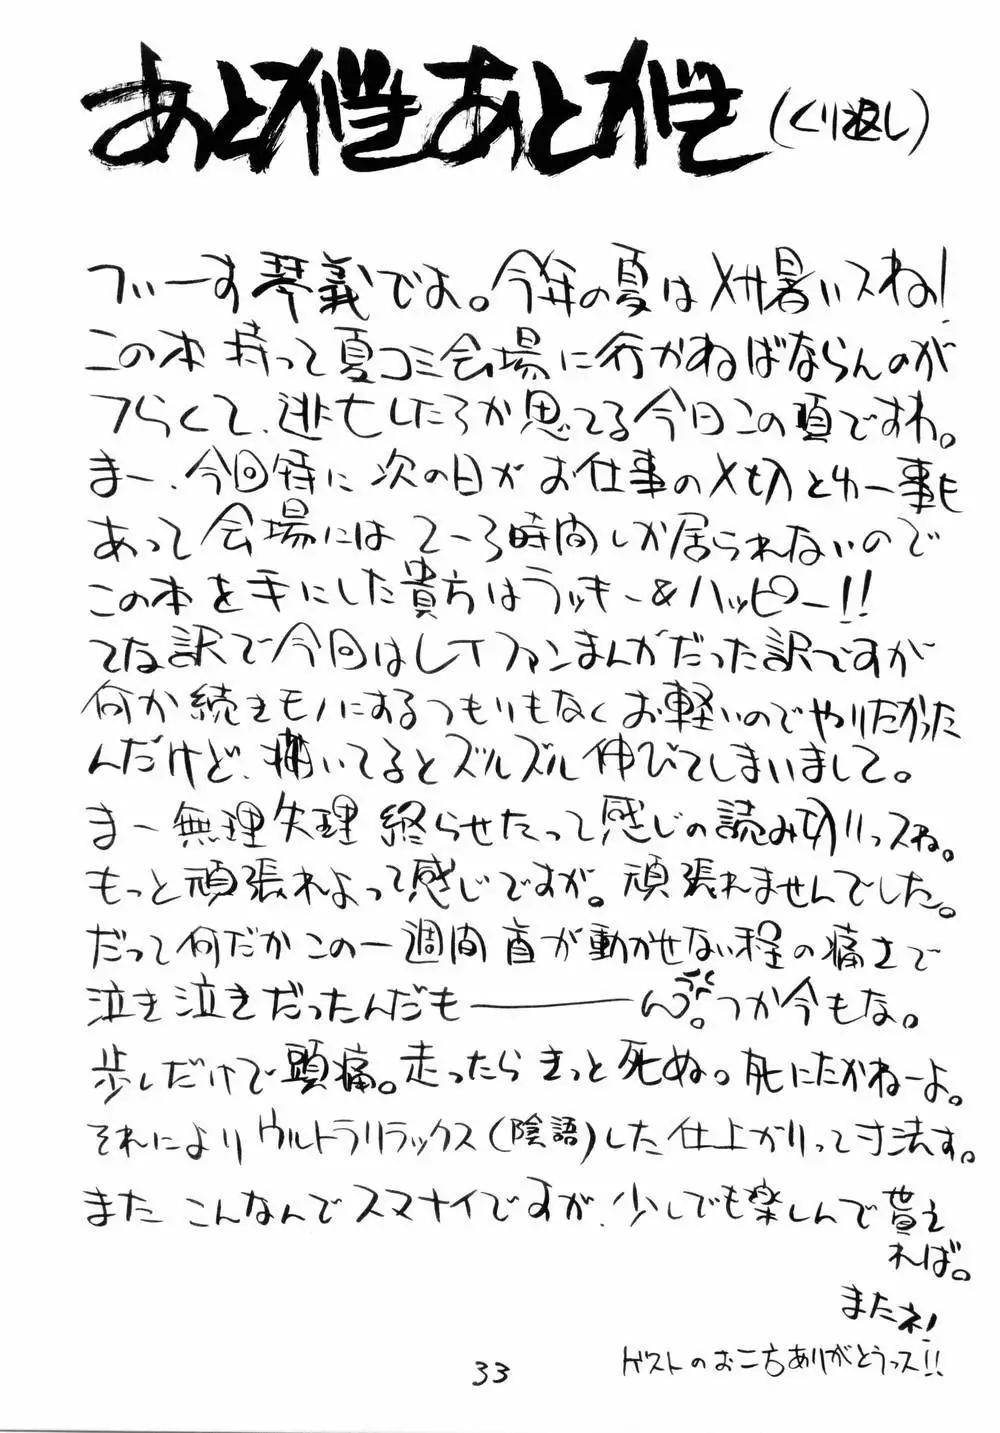 あとがきあとがき(くり返し)
づぃーす琴義でよ。今年の夏はメチャ暑いスね!
この本持って夏コミ会場に行かねばならんのが
つらくて、逃亡したろか思てる今日この頃ですわ。
まー、今回特に次の日がお仕事の〆切とゆー事も
あって会場には2〜3時間しか居られないので
この本を手にした貴方はラッキー&ハッピー!!
てな訳で今回はレイファンまんがだった訳ですが
何か続きモノにするつもりもなくお軽いのでやりたかった
んだけど、描いてるとズルズル伸びてしまいまして。
まー無理矢理終らせたって感じの読み切りっスね。
もっと頑張れよって感じですが。頑張れませんでした。
だって何だかこの一週間首が動かせない程の痛さで
泣き泣きだったんだも――――ん。つか今もな。
歩くだけで頭痛。走ったらきっと死ぬ。死にたかねーよ。
それによりウルトラリラックス(隠語)した仕上がりって寸法す。
またこんなんでスマナイですが、少しでも楽しんで貰え
れば。
またネ!
ゲストのお二方ありがとうっス!!
33